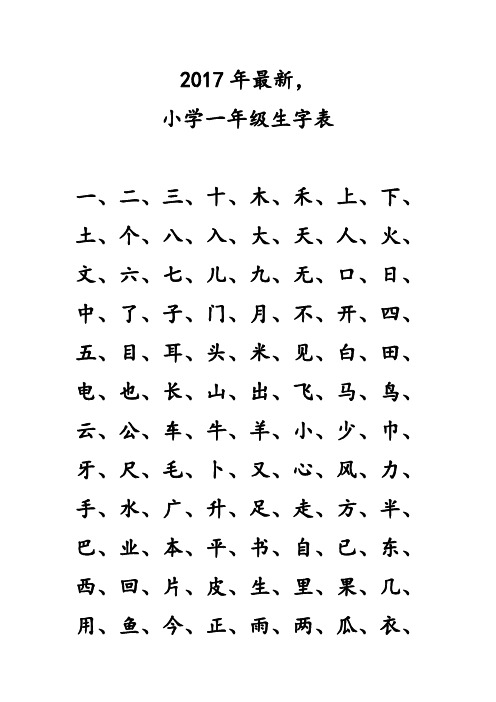 2017年最新，
小学一年级生字表
一、二、三、十、木、禾、上、下、
土、个、八、入、大、天、人、火、
文、六、七、儿、九、无、口、日、
中、了、子、门、月、不、开、四、
五、目、耳、头、米、见、白、田、
电、也、长、山、出、飞、马、鸟、
云、公、车、牛、羊、小、少、巾、
牙、尺、毛、卜、又、心、风、力、
手、水、广、升、足、走、方、半、
巴、业、本、平、书、自、已、东、
西、回、片、皮、生、里、果、几、
用、鱼、今、正、雨、两、瓜、衣、